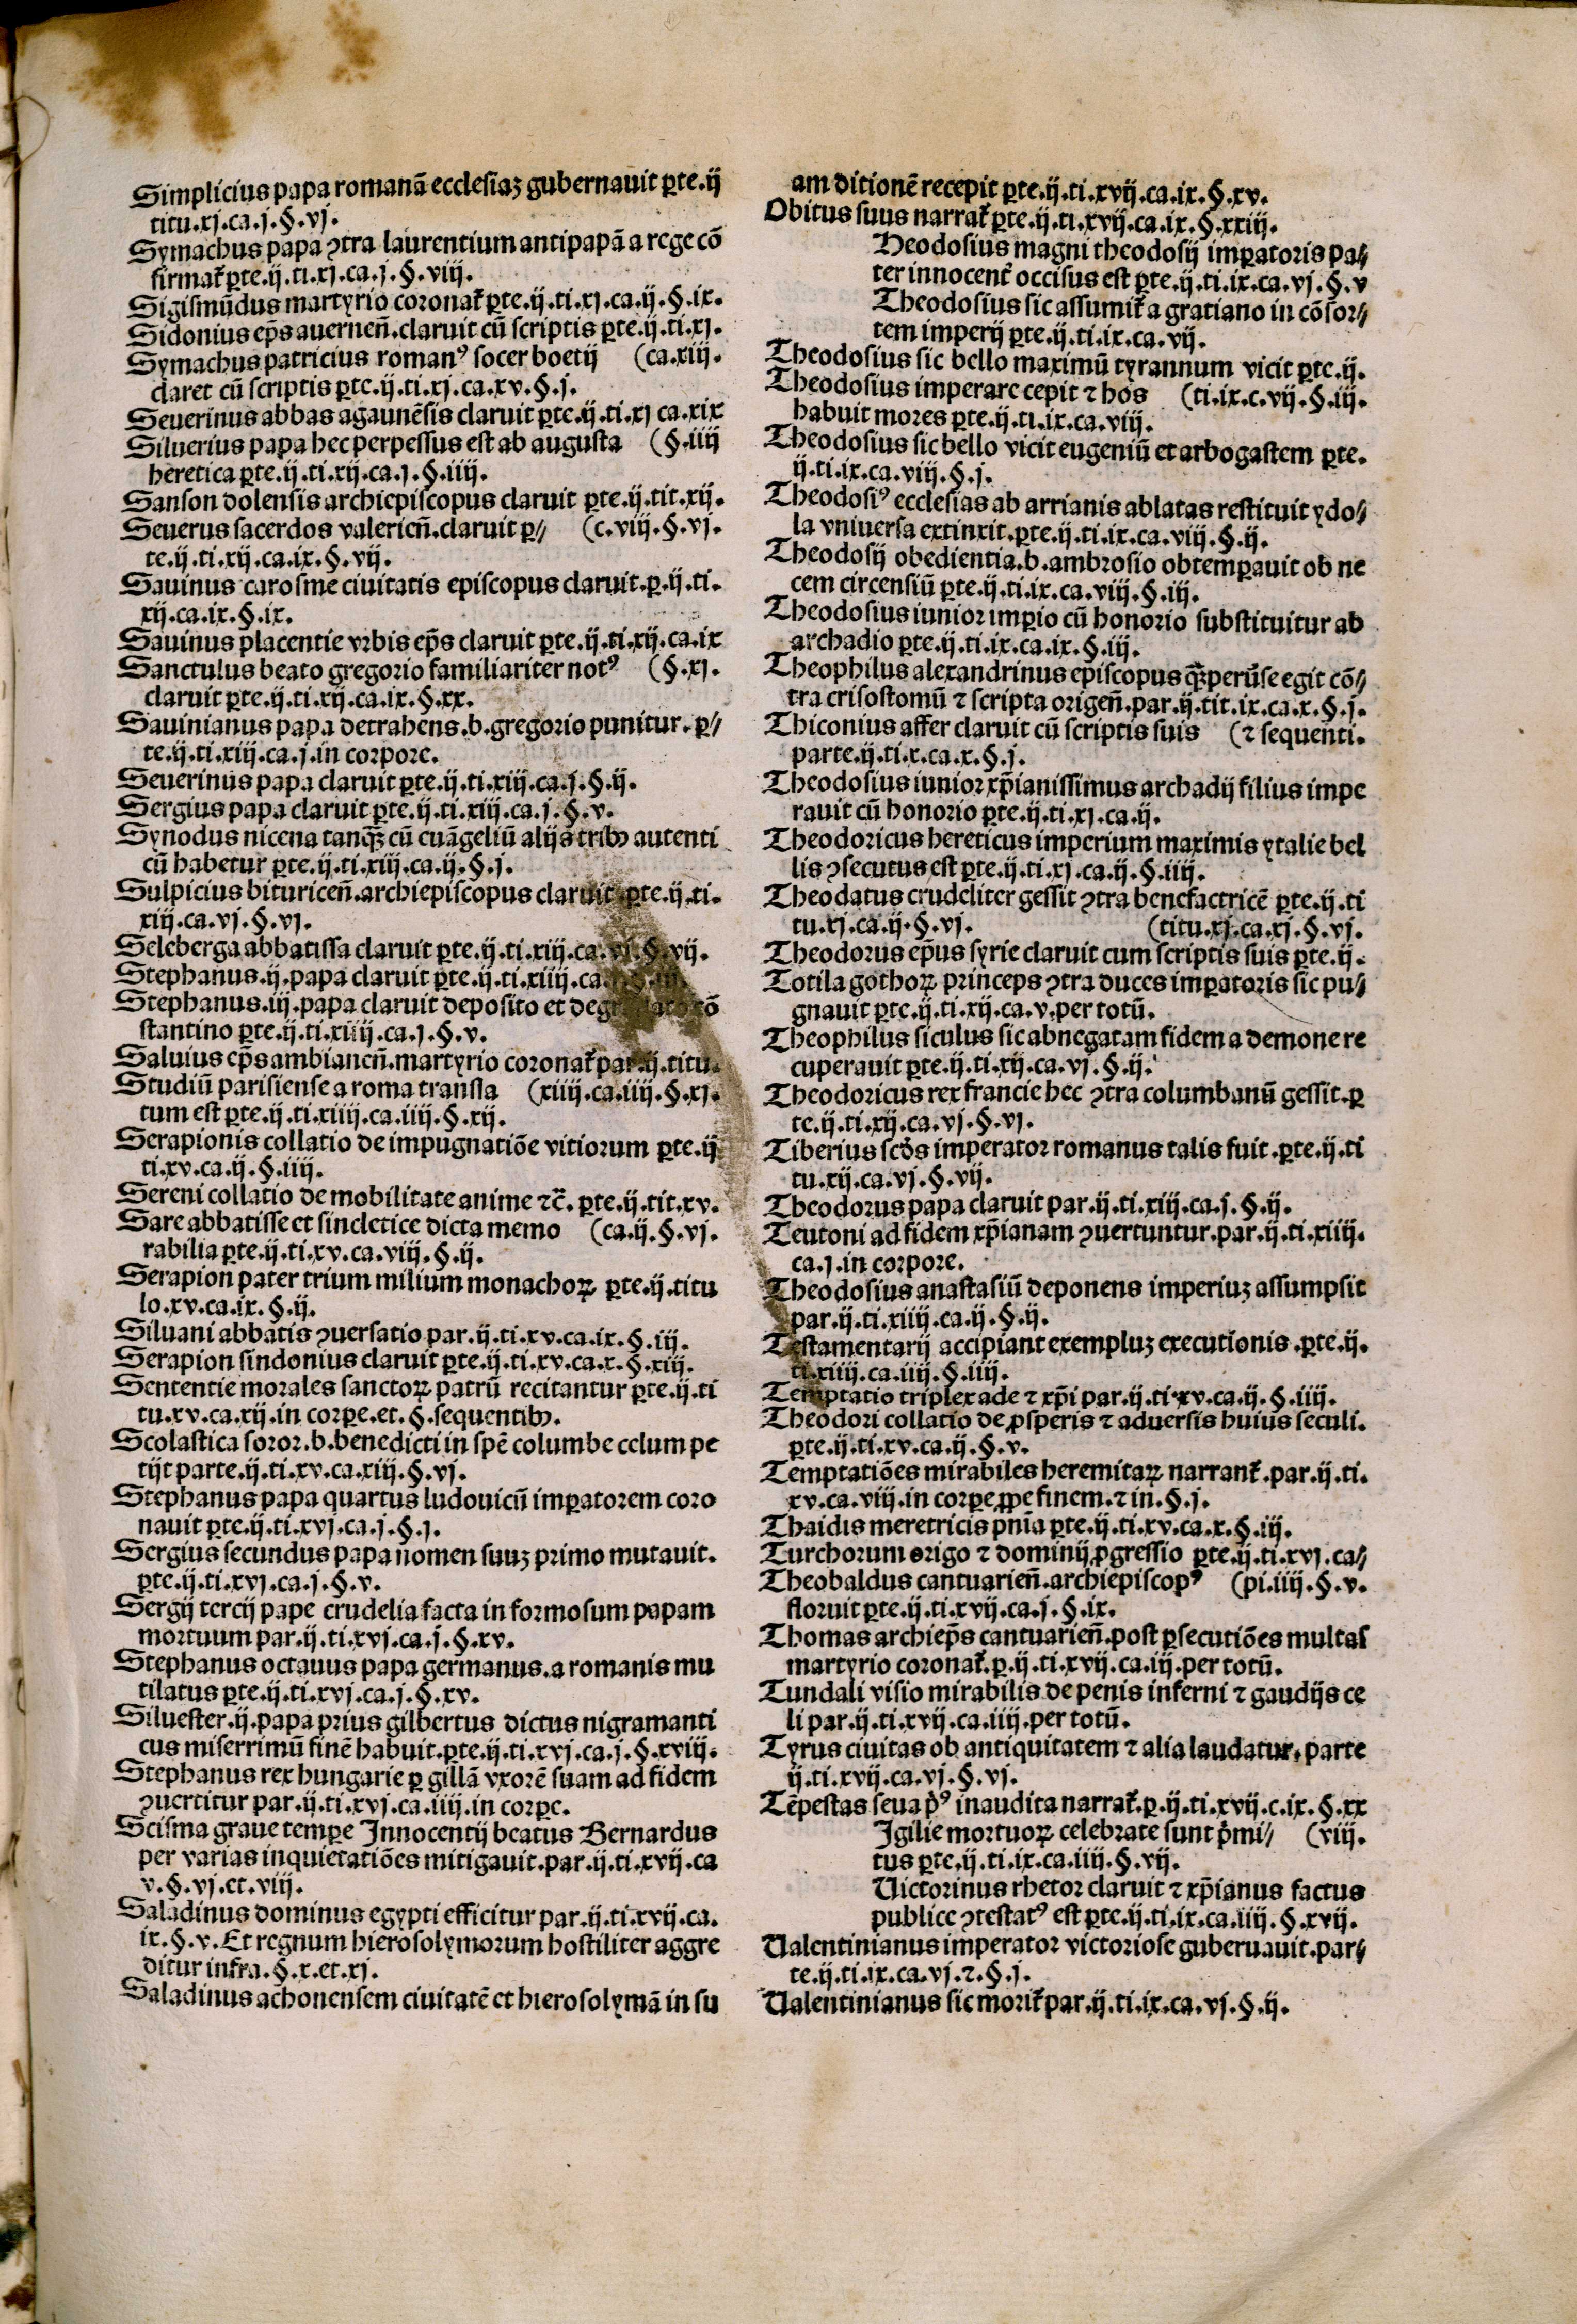 Simplicius papa romanā ecclesiaꝫ gubernauit ꝑte.ij
titu.xj.ca.j.§.vj.
Symachus papa ꝯtra laurentium antipapā a rege cō
firmat᷑ ꝑte.ij.ti.xj.ca.j.§.viij.
Sigismūdus martyrio coronat᷑ ꝑte.ij.ti.xj.ca.ij.§.ix.
Sidonius ep̄s auernen̄.claruit cū scriptis ꝑte.ij.ti.xj.
Symachus patricius romanꝰ socer boetij (ca.xiij.
claret cū scriptis ꝑte.ij.ti.xj.ca.xv.§.j.
Seuerinus abbas agaunēsis claruit ꝑte.ij.ti.xj ca.xix
Siluerius papa hec perpessus est ab augusta (§.iiij
heretica ꝑte.ij.ti.xij.ca.j.§.iiij.
Sanson dolensis archiepiscopus claruit ꝑte.ij.tit.xij.
Seuerus sacerdos valericn̄.claruit ꝑ⸗ (c.viij.§.vj.
te.ij.ti.xij.ca.ix.§.vij.
Sauinus carosme ciuitatis episcopus claruit.ꝑ.ij.ti.
xij.ca.ix.§.ix.
Sauinus placentie vrbis ep̄s claruit ꝑte.ij.ti.xij.ca.ix
Sanctulus beato gregorio familiariter notꝰ (§.xj.
claruit ꝑte.ij.ti.xij.ca.ix.§.xx.
Sauinianus papa detrahens.b.gregorio punitur.ꝑ⸗
te.ij.ti.xiij.ca.j.in corpore.
Seuerinus papa claruit ꝑte.ij.ti.xiij.ca.j.§.ij.
Sergius papa claruit ꝑte.ij.ti.xiij.ca.j.§.v.
Synodus nicena tanqꝫ̄ cū euāgeliū alijs tribꝫ autenti
cū habetur ꝑte.ij.ti.xiij.ca.ij.§.j.
Sulpicius bituricen̄.archiepiscopus claruit ꝑte.ij.ti.
xiij.ca.vj.§.vj.
Seleberga abbatissa claruit ꝑte.ij.ti.xiij.ca.vj.§.vij.
Stephanus.ij.papa claruit ꝑte.ij.ti.xiiij.ca.
Stephanus.iij.papa claruit deposito et degradato cō
stantino ꝑte.ij.ti.xiiij.ca.j.§.v.
Saluius ep̄s ambianen̄.martyrio coronat᷑ par.ij.titu.
Studiū parisiense a roma transla (xiiij.ca.iiij.§.xj.
tum est ꝑte.ij.ti.xiiij.ca.iiij.§.xij.
Serapionis collatio de impugnatiōe vitiorum ꝑte.ij
ti.xv.ca.ij.§.iiij.
Sereni collatio de mobilitate anime ⁊c̄. ꝑte.ij.tit.xv.
Sare abbatisse et sincletice dicta memo (ca.ij.§.vj.
rabilia ꝑte.ij.ti.xv.ca.viij.§.ij.
Serapion pater trium milium monachoꝝ ꝑte.ij.titu
lo.xv.ca.ix.§.ij.
Siluani abbatis ꝯuersatio par.ij.ti.xv.ca.ix.§.iij.
Serapion sindonius claruit ꝑte.ij.ti.xv.ca.x.§.xiij.
Sententie morales sanctoꝝ patrū recitantur ꝑte.ij.ti
tu.xv.ca.xij.in corꝑe.et.§.sequentibꝫ.
Scolastica soror.b.benedicti in spē columbe celum pe
tijt parte.ij.ti.xv.ca.xiij.§.vj.
Stephanus papa quartus ludouicū imꝑatorem coro
nauit ꝑte.ij.ti.xvj.ca.j.§.j.
Sergius secundus papa nomen suuꝫ primo mutauit.
ꝑte.ij.ti.xvj.ca.j.§.v.
Sergij tercij pape crudelia facta in formosum papam
mortuum par.ij.ti.xvj.ca.j.§.xv.
Stephanus octauus papa germanus.a romanis mu
tilatus ꝑte.ij.ti.xvj.ca.j.§.xv.
Siluester.ij.papa prius gilbertus dictus nigramanti
cus miserrimū finē habuit.ꝑte.ij.ti.xvj.ca.j.§.xviij.
Stephanus rex hungarie ꝑ gillā vxorē suam ad fidem
ꝯuertitur par.ij.ti.xvj.ca.iiij.in corꝑe.
Scisma graue tempe Innocentij beatus Bernardus
per varias inquietatiōes mitigauit.par.ij.ti.xvij.ca
v.§.vj.et.viij.
Saladinus dominus egypti efficitur par.ij.ti.xvij.ca.
ix.§.v.Et regnum hierosolymorum hostiliter aggre
ditur infra.§.x.et.xj.
Saladinus achonensem ciuitatē et hierosolymā in su
am ditionē recepit ꝑte.ij.ti.xvij.ca.ix.§.xv.
Obitus suus narrat᷑ ꝑte.ij.ti.xvij.ca.ix.§.xxiij.
Heodosius magni theodosij imꝑatoris pa⸗
ter innocent᷑ occisus est ꝑte.ij.ti.ix.ca.vj.§.v
Theodosius sic assumit᷑ a gratiano in cōsor⸗
tem imperij ꝑte.ij.ti.ix.ca.vij.
Theodosius sic bello maximū tyrannum vicit ꝑte.ij.
Theodosius imperare cepit ⁊ hos (ti.ix.c.vij.§.iij.
habuit mores ꝑte.ij.ti.ix.ca.viij.
Theodosius sic bello vicit eugeniū et arbogastem ꝑte.
ij.ti.ix.ca.viij.§.j.
Theodosiꝰ ecclesias ab arrianis ablatas restituit ydo⸗
la vniuersa extinxit.ꝑte.ij.ti.ix.ca.viij.§.ij.
Theodosij obedientia.b.ambrosio obtemꝑauit ob ne
cem circensiū ꝑte.ij.ti.ix.ca.viij.§.iij.
Theodosius iunior imꝑio cū honorio substituitur ab
archadio ꝑte.ij.ti.ix.ca.ix.§.iij.
Theophilus alexandrinus episcopus qꝫ̄ perūse egit cō⸗
tra crisostomū ⁊ scripta origen̄.par.ij.tit.ix.ca.x.§.j.
Thiconius affer claruit cū scriptis suis (⁊ sequenti.
parte.ij.ti.x.ca.x.§.j.
Theodosius iunior xp̄ianissimus archadij filius impe
rauit cū honorio ꝑte.ij.ti.xj.ca.ij.
Theodoricus hereticus imperium maximis ytalie bel
lis ꝯsecutus est ꝑte.ij.ti.xj.ca.ij.§.iiij.
Theodatus crudeliter gessit ꝯtra benefactricē ꝑte.ij.ti
tu.xj.ca.ij.§.vj. (titu.xj.ca.xj.§.vj.
Theodorus ep̄us syrie claruit cum scriptis suis ꝑte.ij.
Totila gothoꝝ princeps ꝯtra duces imꝑatoris sic pu⸗
gnauit ꝑte.ij.ti.xij.ca.v.per totū.
Theophilus siculus sic abnegatam fidem a demone re
cuperauit ꝑte.ij.ti.xij.ca.vj.§.ij.
Theodoricus rex francie hec ꝯtra columbanū gessit.ꝑ
te.ij.ti.xij.ca.vj.§.vj.
Tiberius scd̄s imperator romanus talis fuit.ꝑte.ij.ti
tu.xij.ca.vj.§.vij.
Theodorus papa claruit par.ij.ti.xiij.ca.j.§.ij.
Teutoni ad fidem xp̄ianam ꝯuertuntur.par.ij.ti.xiiij.
ca.j.in corpore.
Theodosius anastasiū deponens imperiuꝫ assumpsit
par.ij.ti.xiiij.ca.ij.§.ij.
Testamentarij accipiant exempluꝫ executionis.ꝑte.ij.
ti.xiiij.ca.iiij.§.iiij.
Temptatio triplex ade ⁊ xp̄i par.ij.ti.xv.ca.ij.§.iiij.
Theodori collatio de ꝓsperis ⁊ aduersis huius seculi.
ꝑte.ij.ti.xv.ca.ij.§.v.
Temptatiōes mirabiles heremitaꝝ narrant᷑.par.ij.ti.
xv.ca.viij.in corꝑe ꝓpe finem.⁊ in.§.j.
Thaidis meretricis pn̄ia ꝑte.ij.ti.xv.ca.x.§.iij.
Turchorum origo ⁊ dominij ꝓgressio ꝑte.ij.ti.xvj.ca⸗
Theobaldus cantuarien̄.archiepiscopꝰ (pi.iiij.§.v.
floruit ꝑte.ij.ti.xvij.ca.j.§.ix.
Thomas archiep̄s cantuarien̄.post ꝑsecutiōes multas
martyrio coronat᷑.ꝑ.ij.ti.xvij.ca.iij.per totū.
Tundali visio mirabilis de penis inferni ⁊ gaudijs ce
li par.ij.ti.xvij.ca.iiij.per totū.
Tyrus ciuitas ob antiquitatem ⁊ alia laudatur.parte
ij.ti.xvij.ca.vj.§.vj.
Tēpestas seua p̄ꝰ inaudita narrat᷑.ꝑ.ij.ti.xvij.c.ix.§.xx
Igilie mortuoꝝ celebrate sunt p̄mi⸗ (viij.
tus ꝑte.ij.ti.ix.ca.iiij.§.vij.
Victorinus rhetor claruit ⁊ xp̄ianus factus
publice ꝯtestatꝰ est ꝑte.ij.ti.ix.ca.iiij.§.xvij.
Ualentinianus imperator victoriose guberuauit.par⸗
te.ij.ti.ix.ca.vj.⁊.§.j.
Ualentinianus sic morit᷑ par.ij.ti.ix.ca.vj.§.ij.